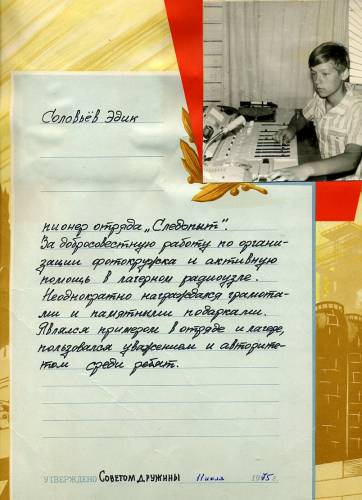 Соловьёв Эдик
пионер отряда „Следопыт".
За добросовестную работу по органи-
зации фотокружка и активную
помощь в лагерном радиоузле.
Неоднократно награждался грамота-
ми и памятными подарками.
Являлся примером в отряде и лагере,
пользовался уважением и авторите-
том среди ребят.
УТВЕРЖДЕНО Советом дружины 11 июля 1975 г.